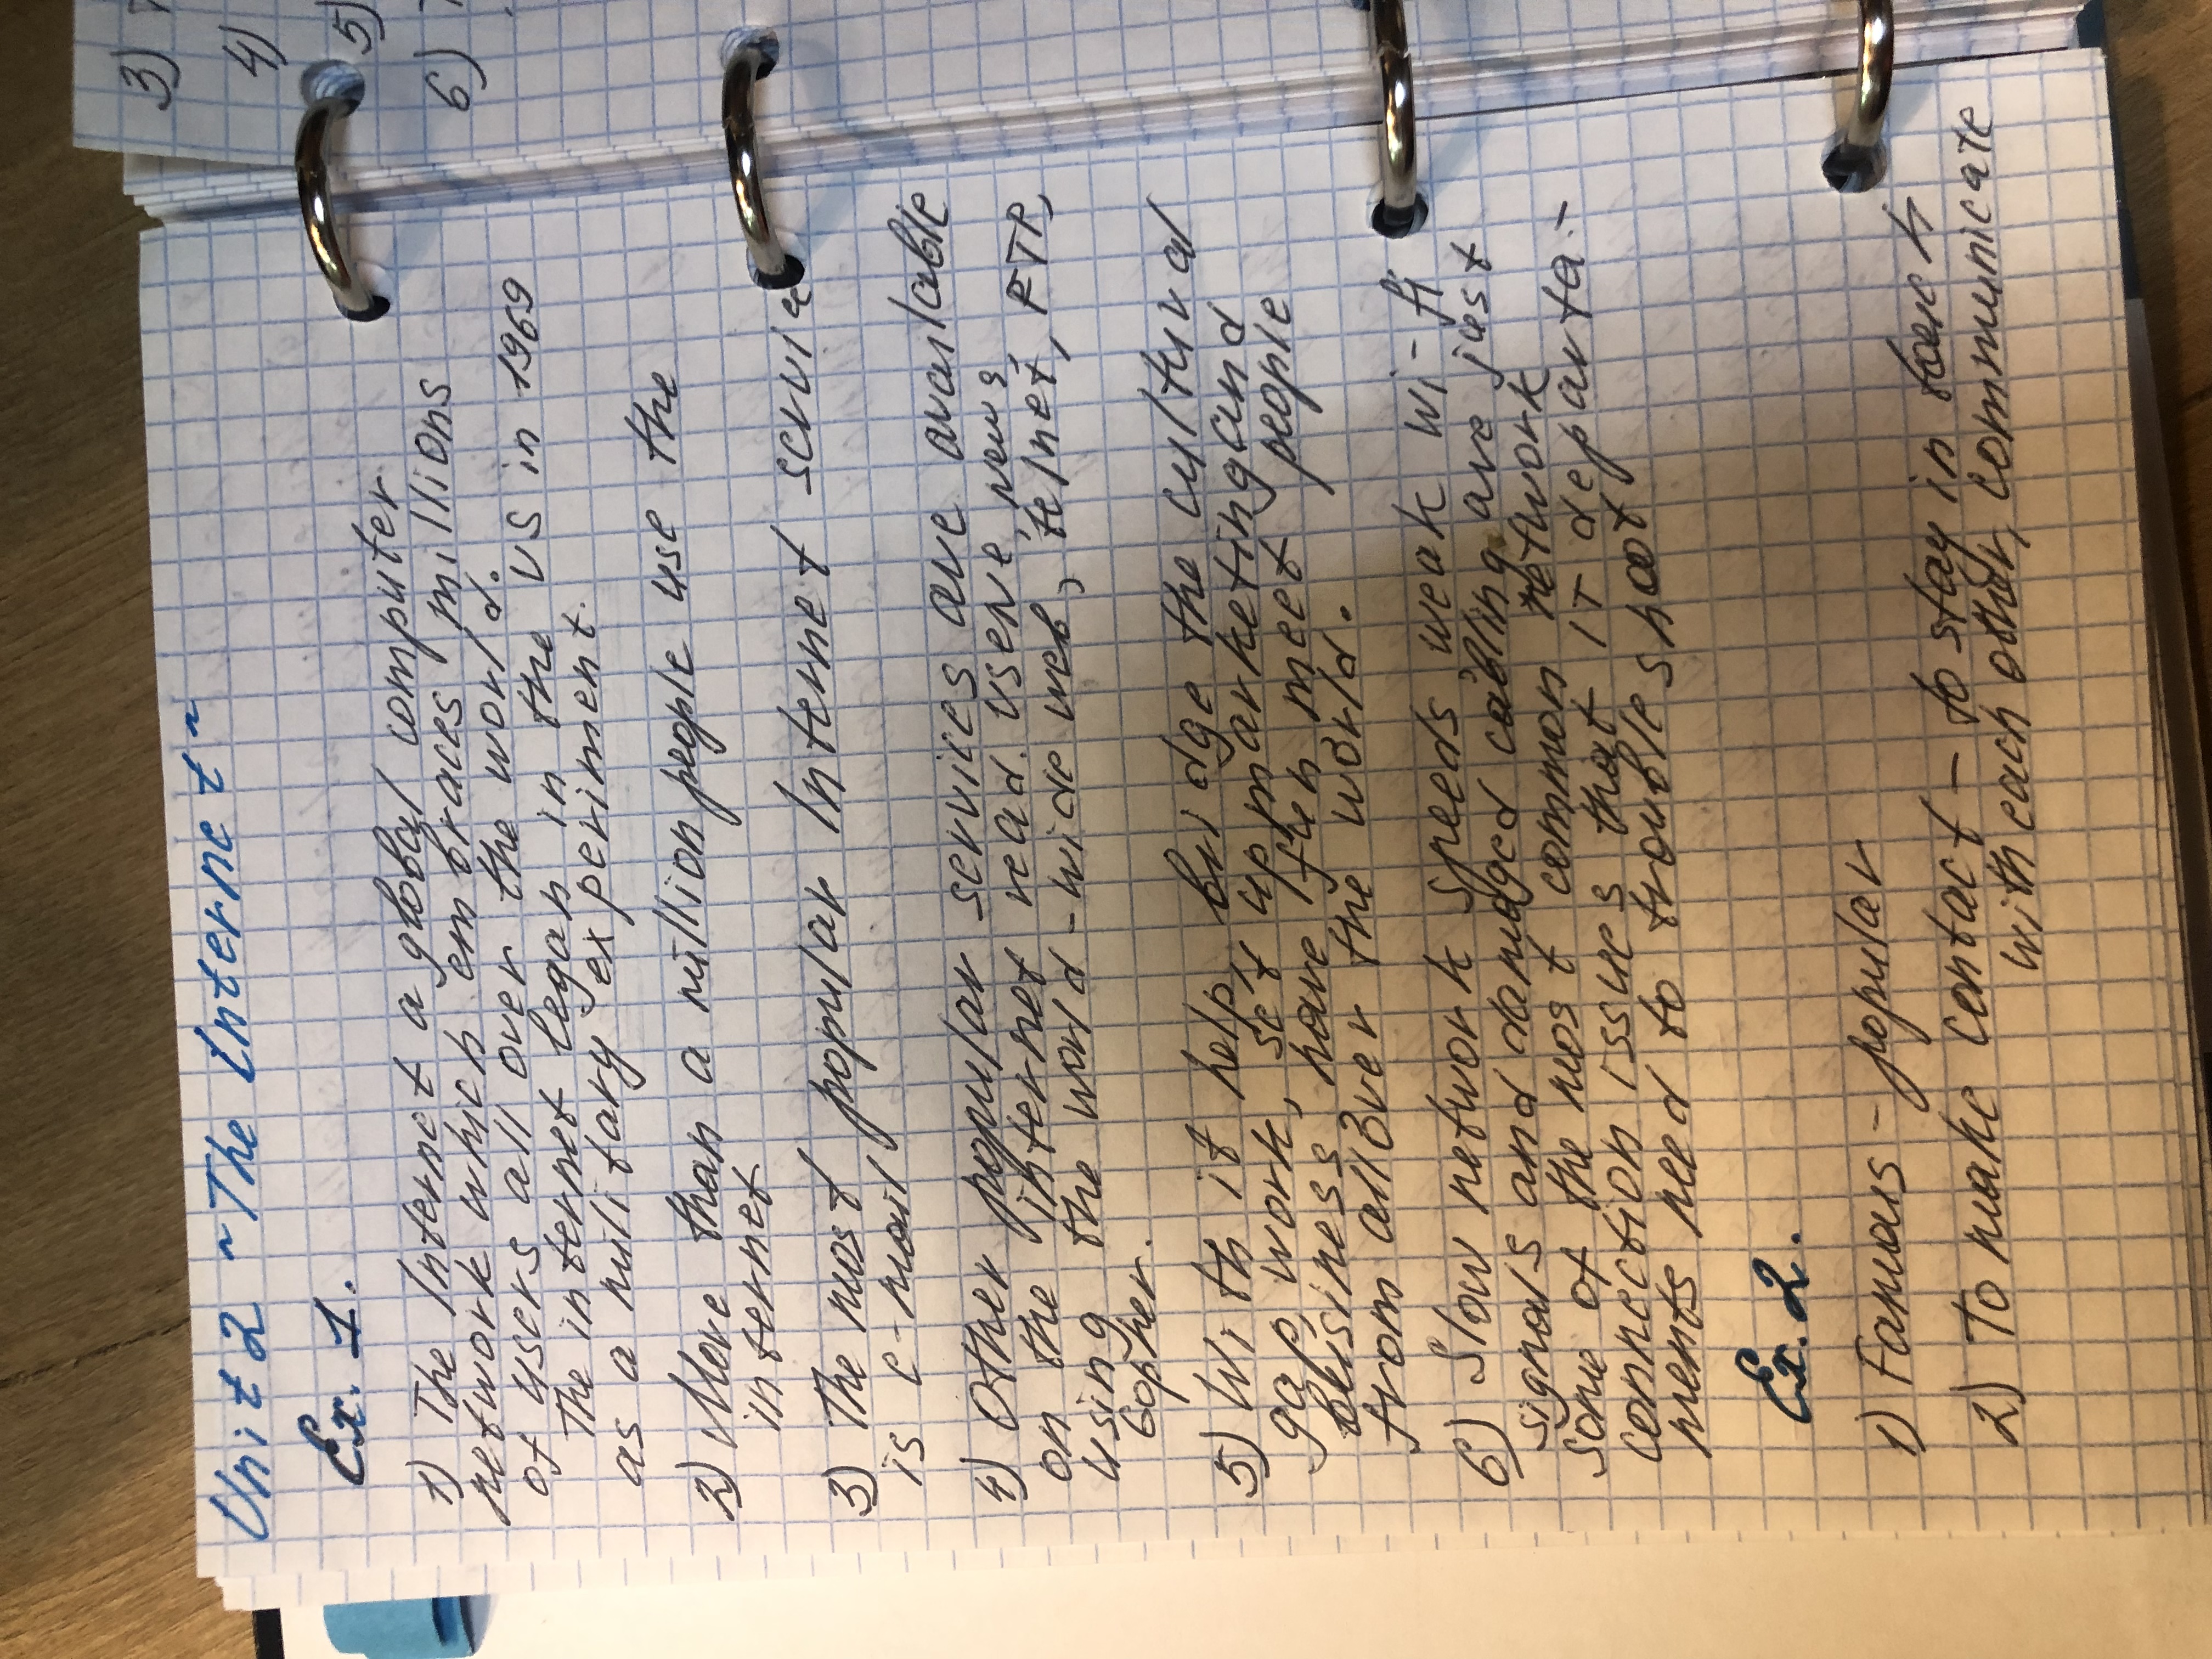 Unit 2 ~ The Internet ~
Ex. 1.
1) The Internet a global computer
network which embraces millions
of users all over the world.
The internet began in the US in 1969
as a military experiment.
2) More than a million people use the
internet
3) The most popular Internet service
is e-mail
4) Other popular services are available
on the internet read. usenet news
using the world-wide web, telnet, FTP,
Gopher.
5) With it help bridge the cultural
gap, work, set up marketing and
business, have fun meet people
from all over the world.
6) Slow network speeds weak wi-fi
signals and damaged cabling are just
some of the most common network
connection issues that IT departa-
ments need to troubleshoot
Ex. 2.
1) Famous - popular
2) To make contact - to stay in touch
with each other, communicate
3)
4)
5)
6)